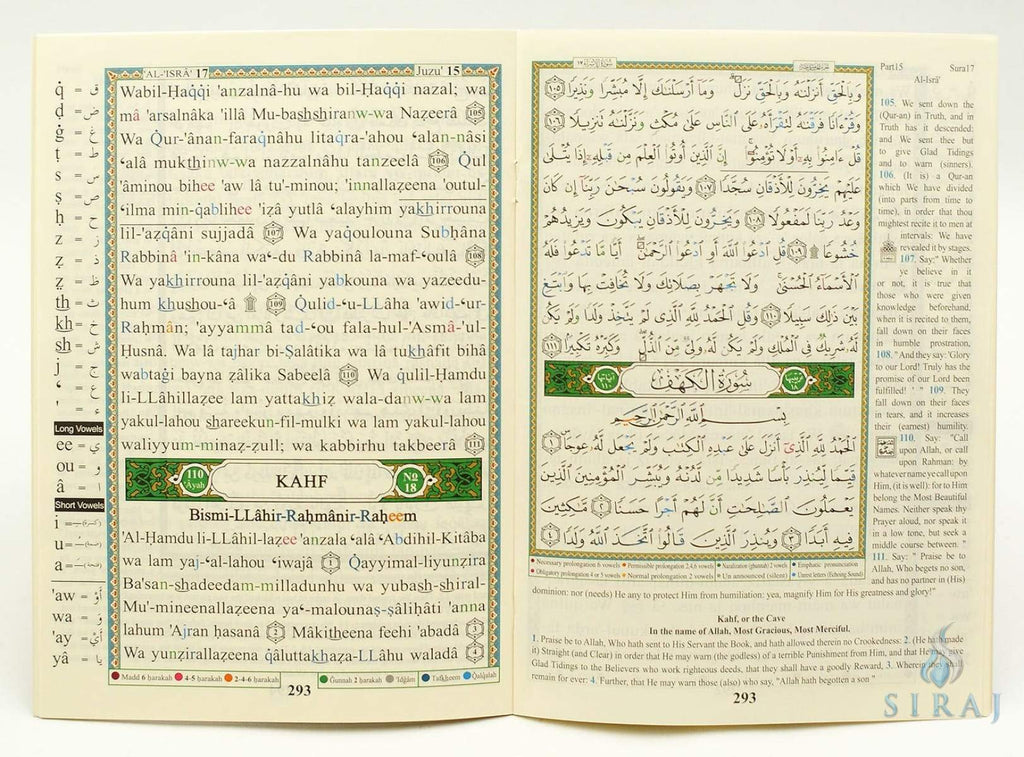 'AL-'ISRÂ' 17
Juzu' 15
q̇ = ق
ḍ = ض
ġ = غ
ṭ = ط
s = س
ṣ = ص
ḥ = ح
z = ز
ẓ = ظ
th = ث
kh = خ
sh = ش
j = ج
‘ = ع
' = ء
Long Vowels
ee = ي
ou = و
â = ا
Short Vowels
i =
u =
a =
'aw = أَوْ
'ay = أَيْ
yâ = يا
Wabil-Ḥaqqi 'anzalnâ-hu wa bil-Ḥaqqi nazal; wa
mâ 'arsalnâka 'illâ Mu-bashshiranw-wa Nazeerâ 105
Wa Qur-'ânan-faraqnâhu litaqra-'ahou 'alan-nâsi
'alâ mukthinw-wa nazzalnâhu tanzeelâ 106 Qul
'âminou bihee 'aw lâ tu'-minou; 'innallaẓeena 'outul-
'ilma min-qablihee 'iẓâ yutlâ 'alayhim yakhirrouna
lil-'aẓqâni sujjadâ 107 Wa yaqoulouna Subḥâna
Rabbinâ 'in-kâna wa‘-du Rabbinâ la-maf-‘oulâ 108
Wa yakhirrouna lil-'aẓqâni yabkouna wa yazeedu-
hum khushou-‘â ۩ 109 Qulid-‘u-LLâha 'awid-‘ur-
Raḥmân; 'ayyammâ tad-‘ou fala-hul-'Asmâ-'ul-
Ḥusnâ. Wa lâ tajhar bi-Ṣalâtika wa lâ tukhâfit bihâ
wabtaġi bayna ẓâlika Sabeelâ 110 Wa qulil-Ḥamdu
li-LLâhillaẓee lam yattakhiẓ wala-danw-wa lam
yakul-lahou shareekun-fil-mulki wa lam yakul-lahou
waliyyum-minaẓ-ẓull; wa kabbirhu takbeerâ 111
110 Ayah
KAHF
No 18
Bismi-LLâhir-Raḥmânir-Raḥeem
'Al-Ḥamdu li-LLâhil-laẓee 'anzala 'alâ ‘Abdihil-Kitâba
wa lam yaj-‘al-lahou ‘iwajâ 1 Qayyimal-liyunẓira
Ba'san-shadeedam-milladunhu wa yubash-shiral-
Mu'-mineenallaẓeena ya‘-malounaṣ-ṣâliḥâti 'anna
lahum 'Ajran ḥasanâ 2 Mâkitheena feehi 'abadâ 3
Wa yunẓirallaẓeena qâluttakhaẓa-LLâhu waladâ 4
Madd 6 ḥarakah 4-5 ḥarakah 2-4-6 ḥarakah Ġunnah 2 ḥarakah 'Idġâm Tafkheem Qalqalah
293
وَبِالْحَقِّ أَنزَلْنَاهُ وَبِالْحَقِّ نَزَلَ ۗ وَمَا أَرْسَلْنَاكَ إِلَّا مُبَشِّرًا وَنَذِيرًا ١٠٥
وَقُرْءَانًا فَرَقْنَاهُ لِتَقْرَأَهُ عَلَى النَّاسِ عَلَىٰ مُكْثٍ وَنَزَّلْنَاهُ تَنزِيلًا ١٠٦
قُلْ ءَامِنُوا بِهِ أَوْ لَا تُؤْمِنُوا ۚ إِنَّ الَّذِينَ أُوتُوا الْعِلْمَ مِن قَبْلِهِ إِذَا يُتْلَىٰ
عَلَيْهِمْ يَخِرُّونَ لِلْأَذْقَانِ سُجَّدًا ١٠٧ وَيَقُولُونَ سُبْحَانَ رَبِّنَا إِن كَانَ
وَعْدُ رَبِّنَا لَمَفْعُولًا ١٠٨ وَيَخِرُّونَ لِلْأَذْقَانِ يَبْكُونَ وَيَزِيدُهُمْ
خُشُوعًا ۩ ١٠٩ قُلِ ادْعُوا اللَّهَ أَوِ ادْعُوا الرَّحْمَٰنَ ۖ أَيًّا مَّا تَدْعُوا فَلَهُ
الْأَسْمَاءُ الْحُسْنَىٰ ۚ وَلَا تَجْهَرْ بِصَلَاتِكَ وَلَا تُخَافِتْ بِهَا وَابْتَغِ
بَيْنَ ذَٰلِكَ سَبِيلًا ١١٠ وَقُلِ الْحَمْدُ لِلَّهِ الَّذِي لَمْ يَتَّخِذْ وَلَدًا وَلَمْ يَكُن
لَّهُ شَرِيكٌ فِي الْمُلْكِ وَلَمْ يَكُن لَّهُ وَلِيٌّ مِّنَ الذُّلِّ ۖ وَكَبِّرْهُ تَكْبِيرًا ١١١
سُورَةُ الْكَهْفِ
بِسْمِ اللَّهِ الرَّحْمَٰنِ الرَّحِيمِ
الْحَمْدُ لِلَّهِ الَّذِي أَنزَلَ عَلَىٰ عَبْدِهِ الْكِتَابَ وَلَمْ يَجْعَل لَّهُ عِوَجًا ١
قَيِّمًا لِّيُنذِرَ بَأْسًا شَدِيدًا مِّن لَّدُنْهُ وَيُبَشِّرَ الْمُؤْمِنِينَ الَّذِينَ
يَعْمَلُونَ الصَّالِحَاتِ أَنَّ لَهُمْ أَجْرًا حَسَنًا ٢ مَّاكِثِينَ
فِيهِ أَبَدًا ٣ وَيُنذِرَ الَّذِينَ قَالُوا اتَّخَذَ اللَّهُ وَلَدًا ٤
Necessary prolongation 6 vowels Permissible prolongation 2,4,6 vowels Nazalization (ghunnah) 2 vowels Emphatic pronunciation
Obligatory prolongation 4 or 5 vowels Normal prolongation 2 vowels Un announced (silent) Unrest letters (Echoing Sound)
Part15 Sura17
Al-Isrâ'
105. We sent down the
(Qur-an) in Truth, and in
Truth has it descended:
and We sent thee but
to give Glad Tidings
and to warn (sinners).
106. (It is) a Qur-an
which We have divided
(into parts from time to
time), in order that thou
mightest recite it to men at
intervals: We have
revealed it by stages.
107. Say:" Whether
ye believe in it
or not, it is true that
those who were given
knowledge beforehand,
when it is recited to them,
fall down on their faces
in humble prostration,
108. "And they say: 'Glory
to our Lord! Truly has the
promise of our Lord been
fulfilled! ' " 109. They
fall down on their faces
in tears, and it increases
their (earnest) humility.
110. Say: "Call
upon Allah, or call
upon Rahman: by
whatever name ye call upon
Him, (it is) well: for to Him
belong the Most Beautiful
Names. Neither speak thy
Prayer aloud, nor speak it
in a low tone, but seek a
middle course between. "
111. Say: " Praise be to
Allah, Who begets no son,
and has no partner in (His)
dominion: nor (needs) He any to protect Him from humiliation: yea, magnify Him for His greatness and glory!"
Kahf, or the Cave
In the name of Allah, Most Gracious, Most Merciful.
1. Praise be to Allah, Who hath sent to His Servant the Book, and hath allowed therein no Crookedness: 2. (He hath made
it) Straight (and Clear) in order that He may warn (the godless) of a terrible Punishment from Him, and that He may give
Glad Tidings to the Believers who work righteous deeds, that they shall have a goodly Reward, 3. Wherein they shall
remain for ever: 4. Further, that He may warn those (also) who say, "Allah hath begotten a son "
293
SIRAJ